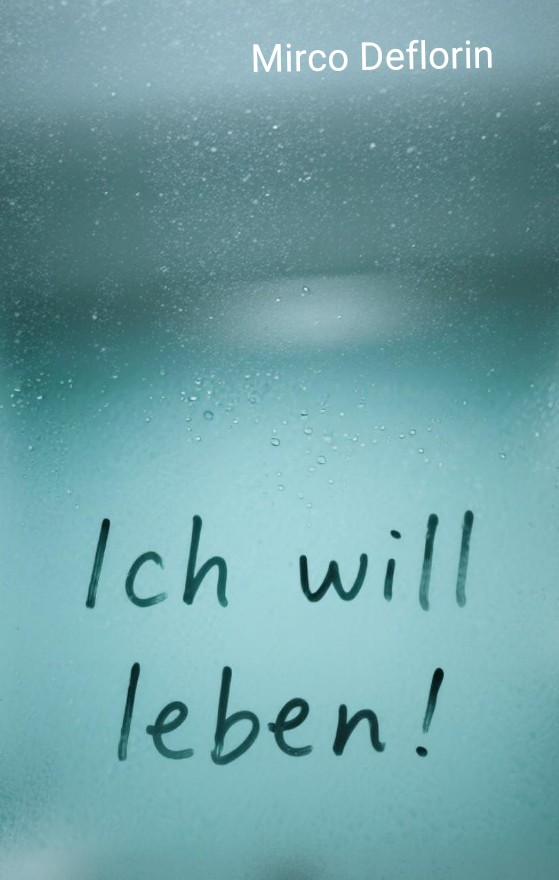 Mirco Deflorin
Ich will
leben!